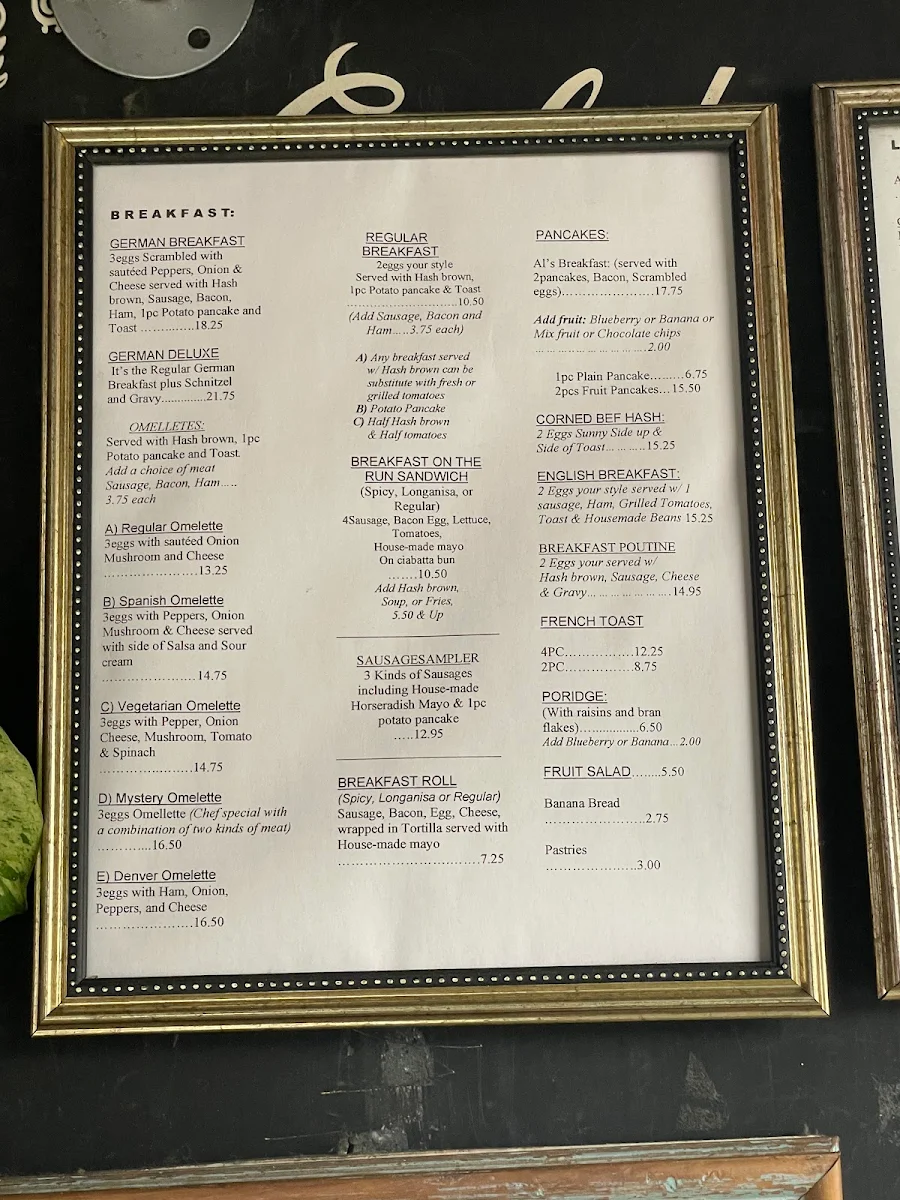 BREAKFAST:
GERMAN BREAKFAST
3eggs Scrambled with
sautéed Peppers, Onion &
Cheese served with Hash
brown, Sausage, Bacon,
Ham, 1pc Potato pancake and
Toast ..............18.25
GERMAN DELUXE
It's the Regular German
Breakfast plus Schnitzel
and Gravy.............21.75
OMELLETES:
Served with Hash brown, 1pc
Potato pancake and Toast.
Add a choice of meat
Sausage, Bacon, Ham.....
3.75 each
A) Regular Omelette
3eggs with sautéed Onion
Mushroom and Cheese
........................13.25
B) Spanish Omelette
3eggs with Peppers, Onion
Mushroom & Cheese served
with side of Salsa and Sour
cream
........................14.75
C) Vegetarian Omelette
3eggs with Pepper, Onion
Cheese, Mushroom, Tomato
& Spinach
........................14.75
D) Mystery Omelette
3eggs Omellette (Chef special with
a combination of two kinds of meat)
.............16.50
E) Denver Omelette
3eggs with Ham, Onion,
Peppers, and Cheese
........................16.50
REGULAR
BREAKFAST
2eggs your style
Served with Hash brown,
1pc Potato pancake & Toast
............................10.50
(Add Sausage, Bacon and
Ham.....3.75 each)
A) Any breakfast served
w/ Hash brown can be
substitute with fresh or
grilled tomatoes
B) Potato Pancake
C) Half Hash brown
& Half tomatoes
BREAKFAST ON THE
RUN SANDWICH
(Spicy, Longanisa, or
Regular)
4Sausage, Bacon Egg, Lettuce,
Tomatoes,
House-made mayo
On ciabatta bun
.......10.50
Add Hash brown,
Soup, or Fries,
5.50 & Up
SAUSAGESAMPLER
3 Kinds of Sausages
including House-made
Horseradish Mayo & 1pc
potato pancake
.....12.95
BREAKFAST ROLL
(Spicy, Longanisa or Regular)
Sausage, Bacon, Egg, Cheese,
wrapped in Tortilla served with
House-made mayo
....................................7.25
PANCAKES:
Al's Breakfast: (served with
2pancakes, Bacon, Scrambled
eggs).......................17.75
Add fruit: Blueberry or Banana or
Mix fruit or Chocolate chips
............................2.00
1pc Plain Pancake.........6.75
2pcs Fruit Pancakes...15.50
CORNED BEF HASH:
2 Eggs Sunny Side up &
Side of Toast..........15.25
ENGLISH BREAKFAST:
2 Eggs your style served w/ 1
sausage, Ham, Grilled Tomatoes,
Toast & Housemade Beans 15.25
BREAKFAST POUTINE
2 Eggs your served w/
Hash brown, Sausage, Cheese
& Gravy.....................14.95
FRENCH TOAST
4PC.................12.25
2PC.................8.75
PORIDGE:
(With raisins and bran
flakes)...............6.50
Add Blueberry or Banana...2.00
FRUIT SALAD.......5.50
Banana Bread
.........................2.75
Pastries
.......................3.00